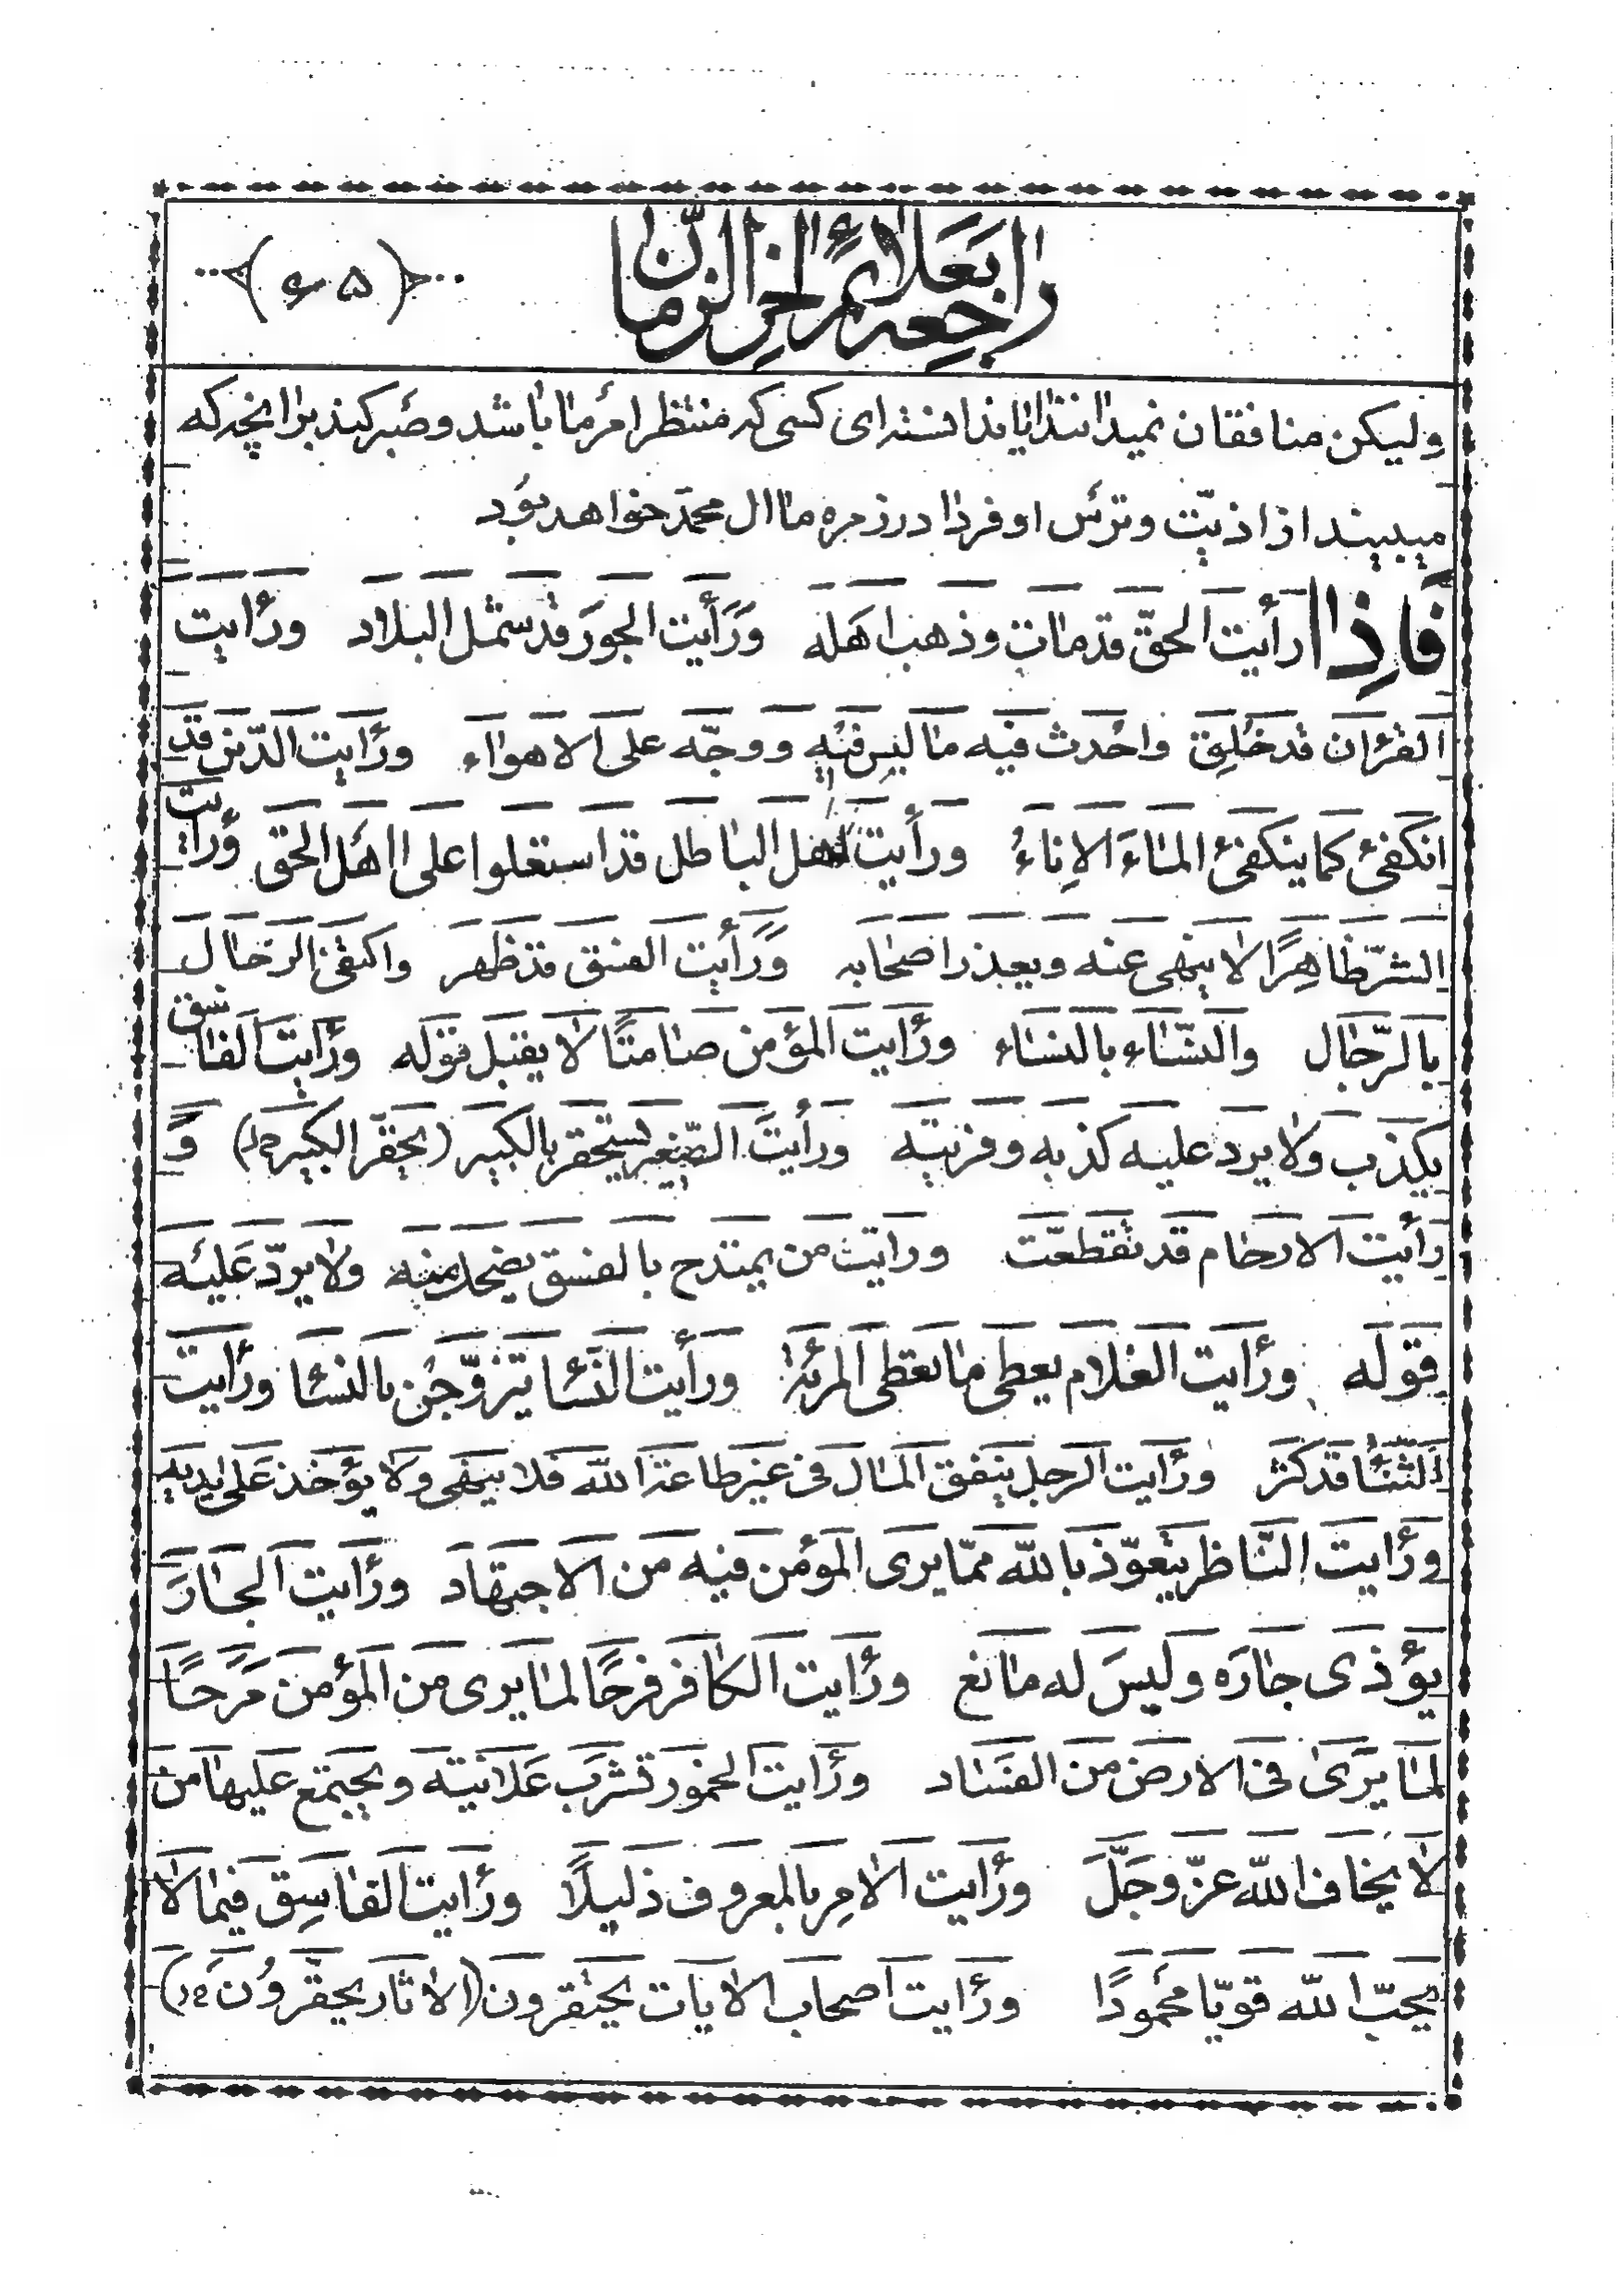 راجعه بعلائم اخر الزمان
(۶۵)
ولیکن منافقان نمیدانند ایا ندانسته ای کسی که منتظر امر ما باشد و صبر کند بر انچه که
میبیند از اذیّت و ترس او فردا در زمره ما ال محمد خواهد بود
فَاِذا رأیت الحقّ قد مات وذهب اهله ورَأیت الجور قد شمل البلاد ورأیت
القرٰان قد خَلِق واحدث فیه ما لیس فیه ووجّه علی الاهواء ورأیت الدّین قد
انکفئ کما ینکفئ الماءَ الاِناءُ ورأیت اهل الباطل قد استعلوا علی اهل الحق ورأیت
الشرّ ظاهِرًا لا ینهی عنه ویعذر اصحابه ورَأیت الفسق قد ظهر واکتفی الرجال
بالرّجال والنّساء بالنساء ورأیت المؤمن صامتًا لا یقبل قوله ورأیت الفاسق
یکذب ولا یرد علیه کذبه وفریته ورأیت الصّغیر یستحقر بالکبیر (یحقّر الکبیر خ‌ل) وَ
رأیت الارحام قد تقطعّت ورایت من یمتدح بالفسق یضحک منه ولا یردّ علیه
قوله ورأیت الغلام یعطی ما تعطی المرئة ورأیت النّساء تیزوّجُن بالنساء ورأیت
الثّناء قد کثر ورأیت الرجل ینفق المال فی غیر طاعة الله فلا ینهی ولا یؤخذ علی یدیه
ورأیت النّاظر یتعوّذ بالله ممّا یری المؤمن فیه من الاجتهاد ورأیت الجارَ
یؤذی جاره ولیسَ له مانع ورأیت الکافر فرحًا لما یری من المؤمن مَرَحًا
لما یرٰی فی الارض من الفساد ورأیت الخمور تشرب علانیته ویجتمع علیها من
لا یخاف الله عزّ وجَلَّ ورأیت الامِر بالمعروف ذلیلًا ورأیت الفاسِق فیما لا
یحبّ الله قویّا محمُودًا ورأیت اصحاب الایات یحتقرون (الاثار یحقّرُونَ خ‌ل)